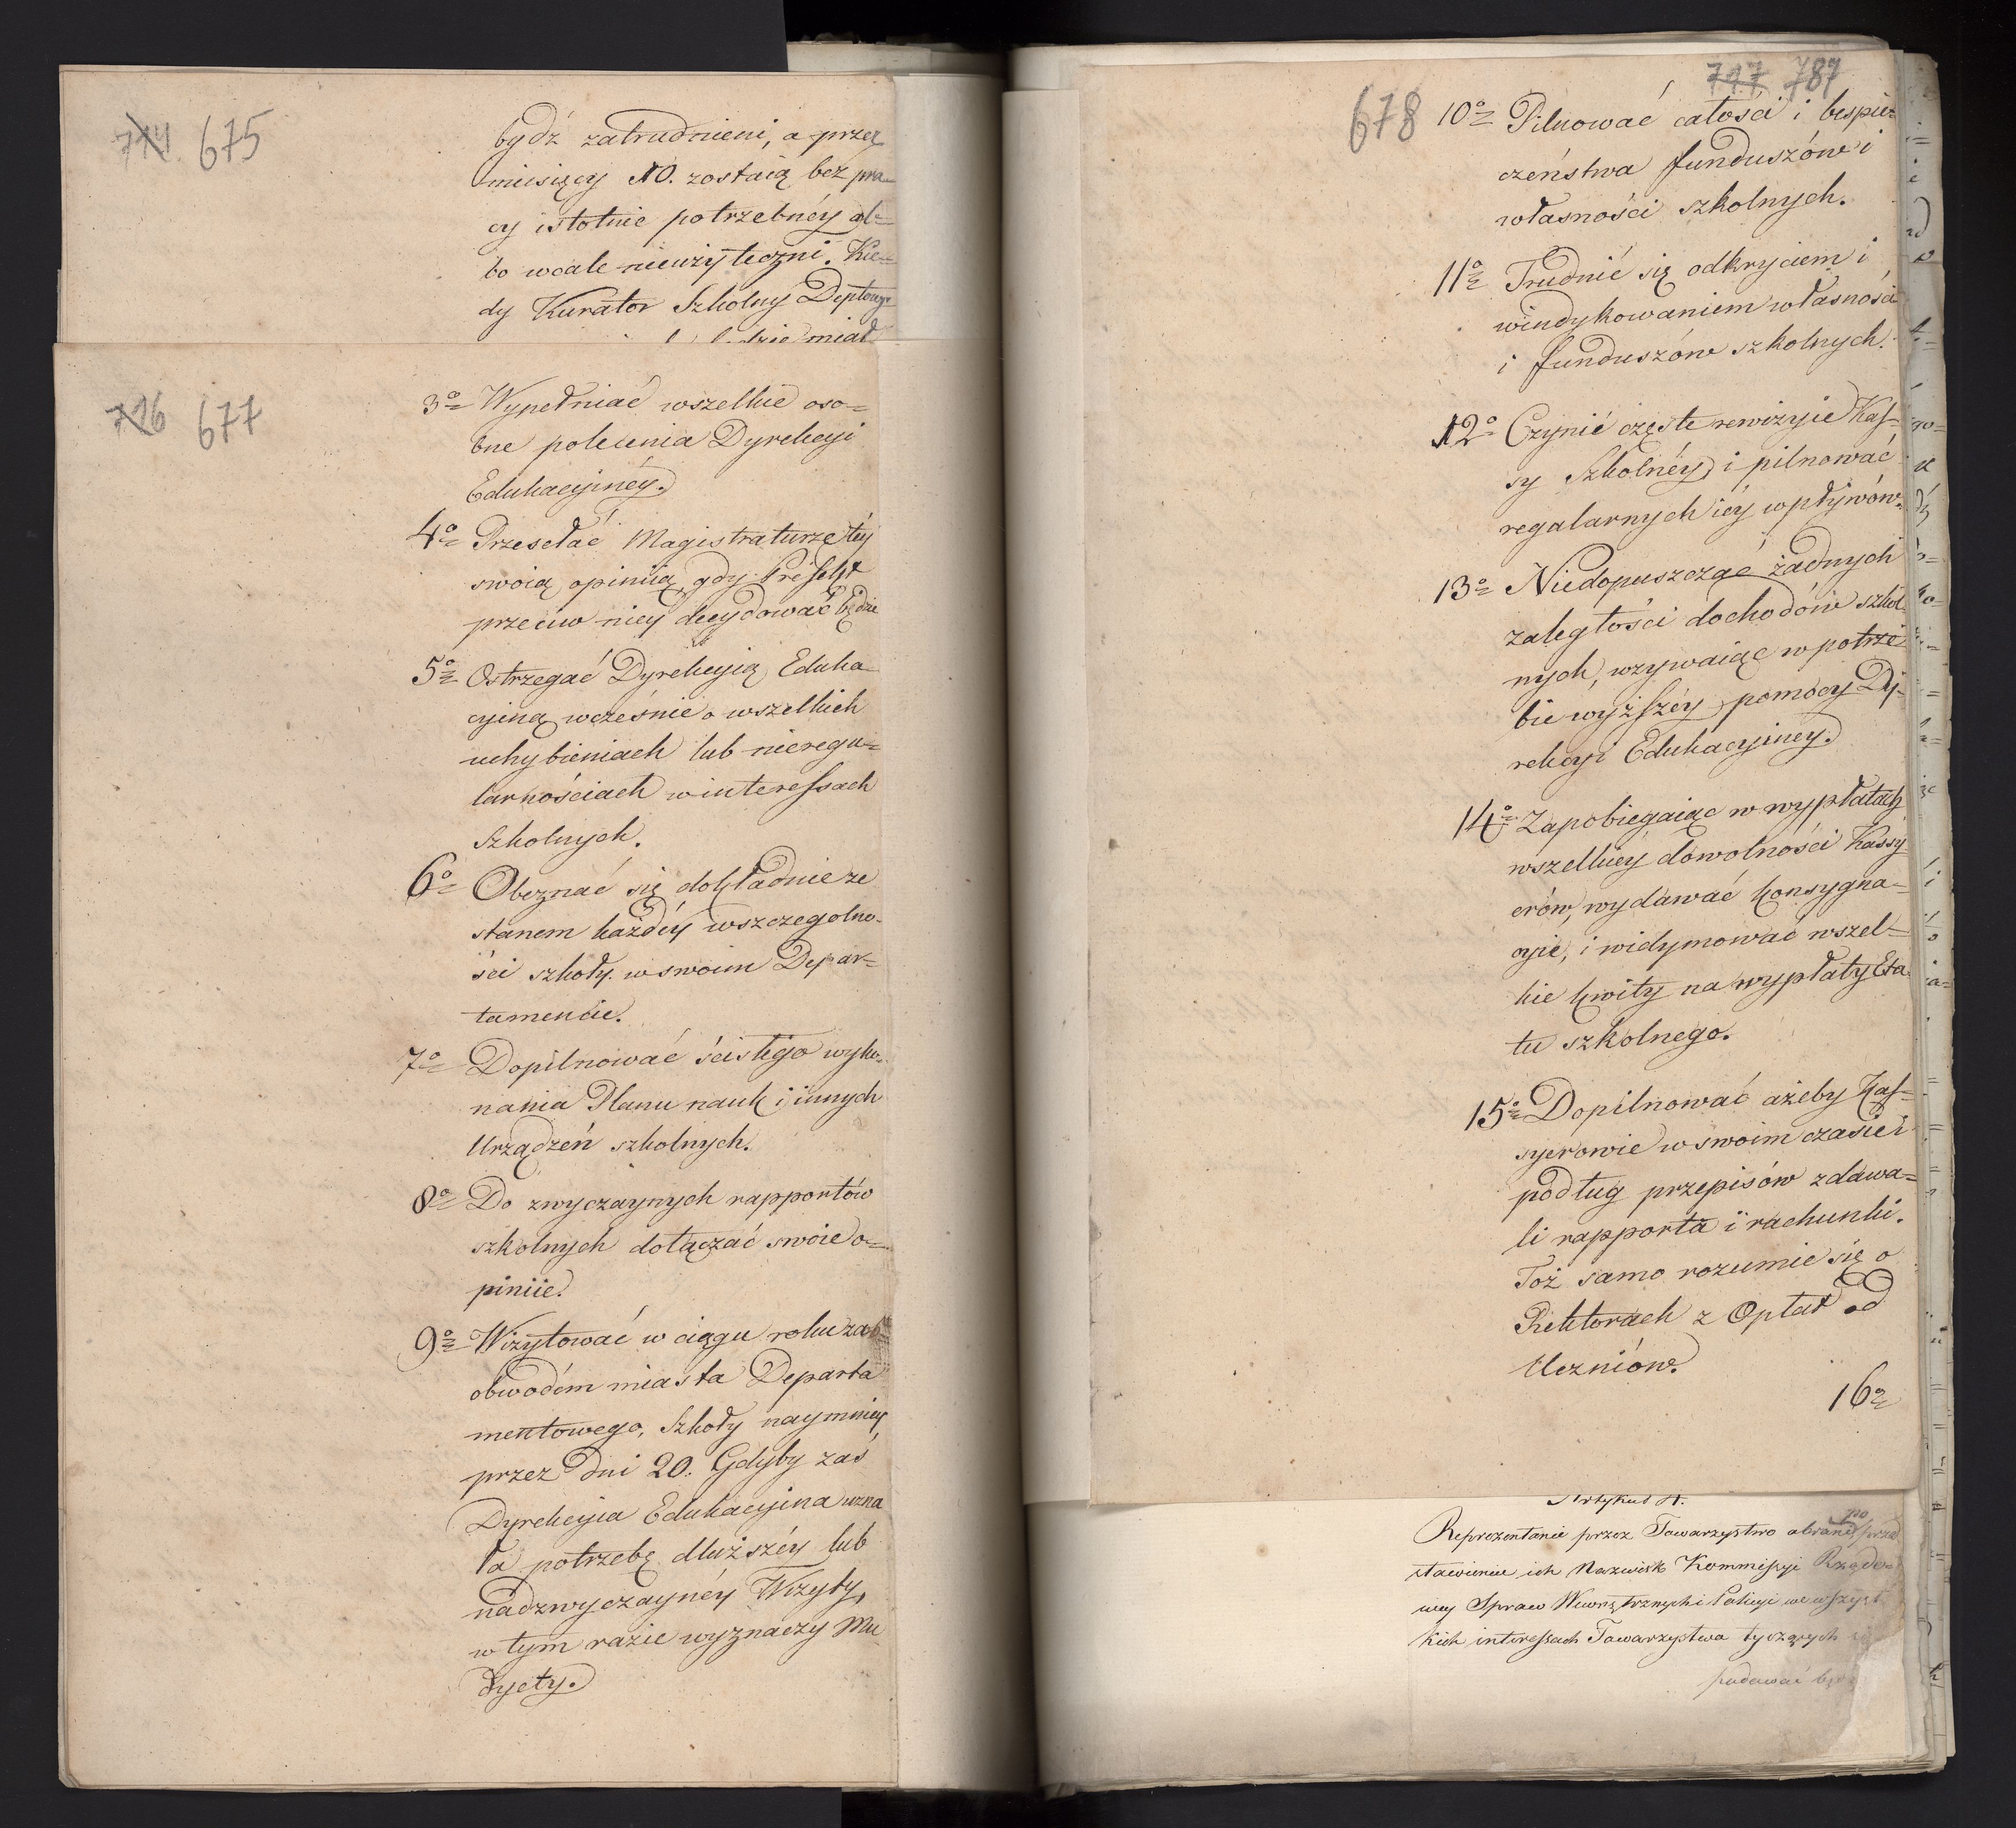 714 675
bydź zatrudnieni, a przez
miesięcy 10. zostaią bez pra-
cy istotnie potrzebnéy al-
bo wcale nieużyteczni. Kie-
dy Kurator Szkolny Deptowy
będzie miał
716 677
3o Wypełniać wszelkie oso-
bne polecenia Dyrekcyi
Edukacyinéy.
4o Przesełać Magistraturze téy
swoią opiniią, gdy Prefekt
przeciw niey decydować będzie
5o Ostrzegać Dyrekcyią Eduka
cyiną wcześnie o wszelkich
uchybieniach lub nieregu-
larnościach w interessach
Szkolnych.
6o Obeznać się dokładnie ze
stanem każdéy wszczegolno-
ści szkoły w swoim Depar-
tamencie.
7o Dopilnować ścisłego wyko-
nania Planu nauk i innych
Urządzeń szkolnych.
8o Do zwyczaynych rapportów
szkolnych dołączać swoie o-
piniie.
9o Wizytować w ciągu roku za
obwodem miasta Departa
mentowego, Szkoły naymniey
przez dni 20. Gdyby zaś
Dyrekcyia Edukacyina uzna
ła potrzebę dłuższéy lub
nadzwyczaynéy Wizyty,
w tym razie wyznaczy Mu
dyety.
717 787
678
10o Pilnować całości i bespie-
czeństwa funduszów i
własności szkolnych.
11o Trudnić się odkryciem i
windykowaniem własności
i funduszów szkolnych.
12o Czynić częste rewizyie Kas-
sy Szkolnéy, i pilnować
regularnych iéy wpływów.
13o Niedopuszczać żadnych
zaległości dochodów szkol-
nych, wzywaiąc w potrze-
bie wyższéy pomocy Dy-
rekcyi Edukacyiney.
14o Zapobiegaiąc w wypłatach
wszelkiey dowolności Kassy-
erów, wydawać konsygna-
cyie, i widymować wszel-
kie kwity na wypłaty Eta-
tu szkolnego.
15o Dopilnować ażeby Kas-
syerowie w swoim czasie i
podług przepisów zdawa-
li rapporta i rachunki.
Toż samo rozumie się o
Rektorach z Opłat od
Uczniów.
16o
Artykuł
Reprezentanci przez Towarzystwo obrani po przed
stawieniu ich Nazwisk Kommissyi Rządo
wey Spraw Wewnętrznych i Policyi we wszyst
kich interessach Towarzystwa tyczących
podawać